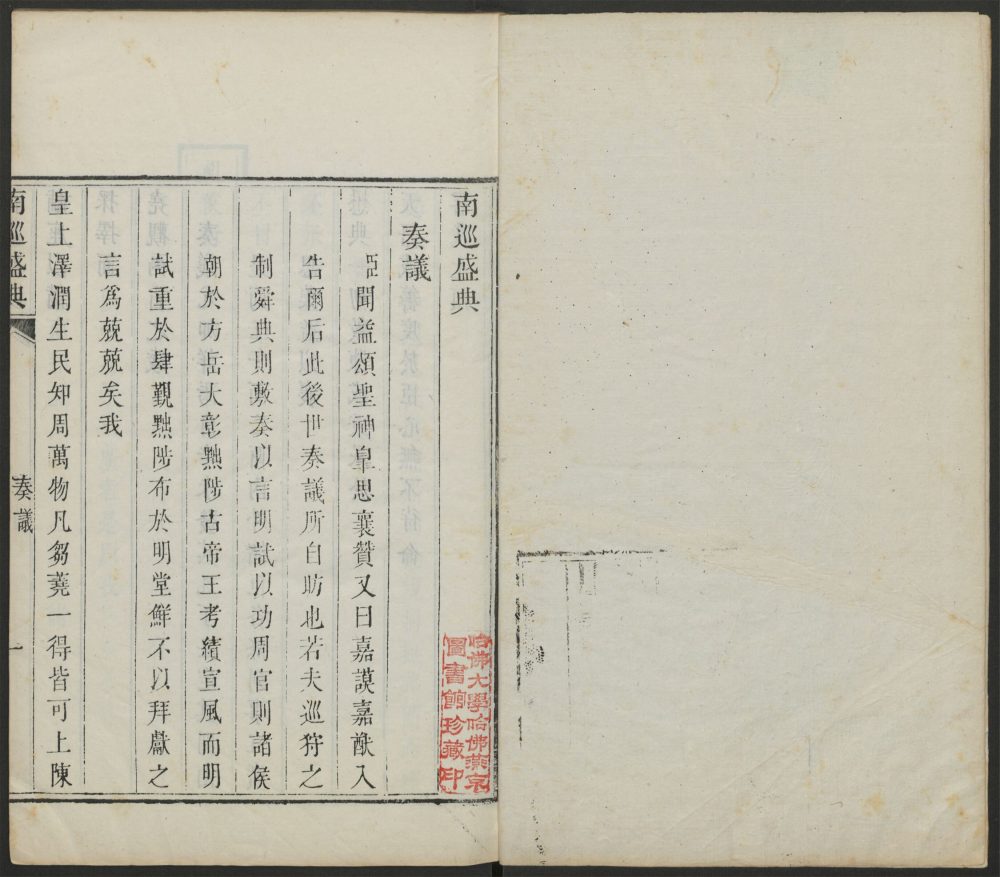 南巡盛典
奏議
臣聞益頌聖神臯思襄贊又曰嘉謨嘉猷入
告爾后此後世奏議所自昉也若夫巡狩之
制舜典則敷奏以言明試以功周官則諸侯
朝於方岳大彰黜陟古帝王考績宣風而明
試重於肆覲黜陟布於明堂鮮不以拜獻之
言爲兢兢矣我
皇上澤潤生民知周萬物凡芻蕘一得皆可上陳
南巡盛典 奏議 一
哈佛大學哈佛燕京
圖書館珍藏印